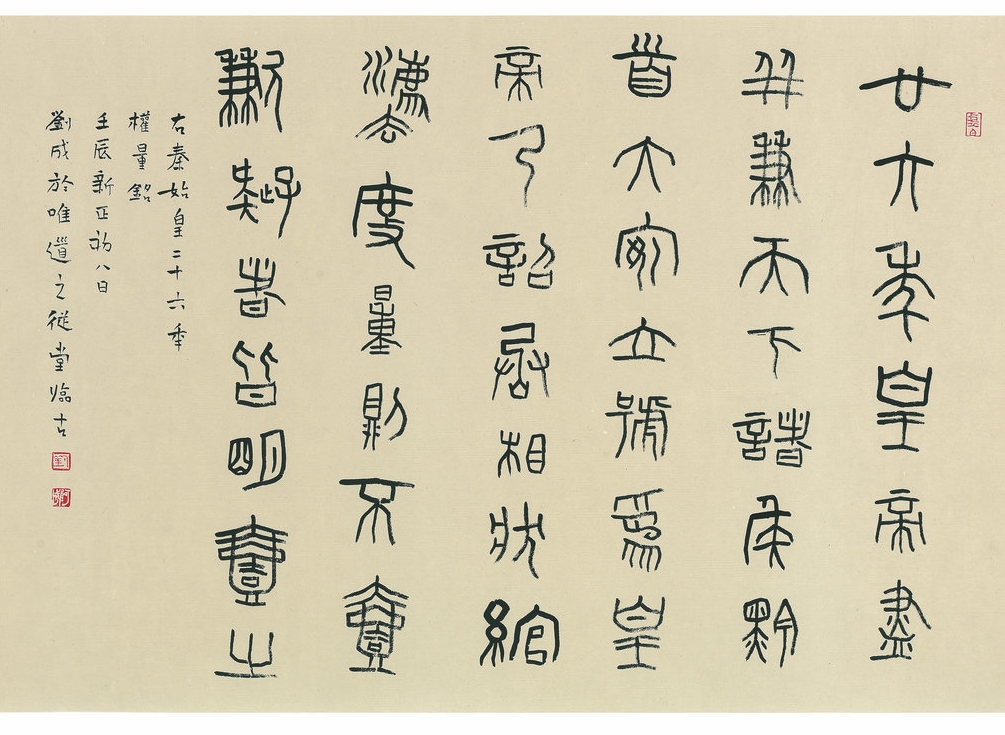 廿六年皇帝盡
并兼天下諸侯黔
首大安立號爲皇
帝乃詔丞相狀綰
灋度量則不壹
歉疑者皆明壹之
右秦始皇二十六年
權量銘
壬辰新正初八日
劉成於唯道之從堂臨古